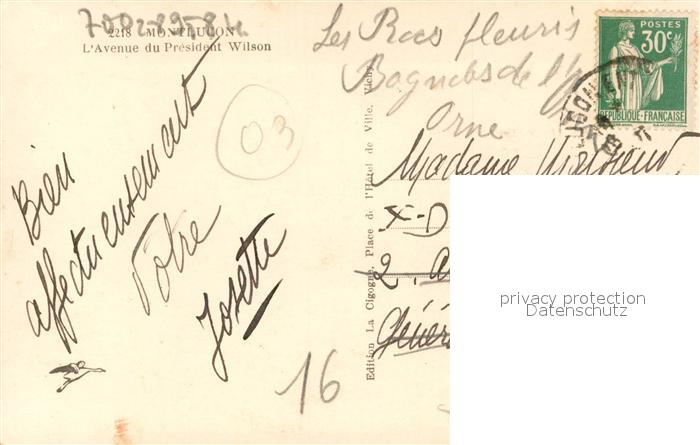 70028958 h
2218 MONTLUÇON
L'Avenue du Président Wilson
Les Rocs fleuris
Bagnoles de l'
Orne
03
Bien
affectueusement
Votre
Josette
16
Edition La Cigogne, Place de l'Hôtel de Ville, Vichy
POSTES
30c
REPUBLIQUE-FRANÇAISE
Madame
2.
Génér
privacy protection
Datenschutz